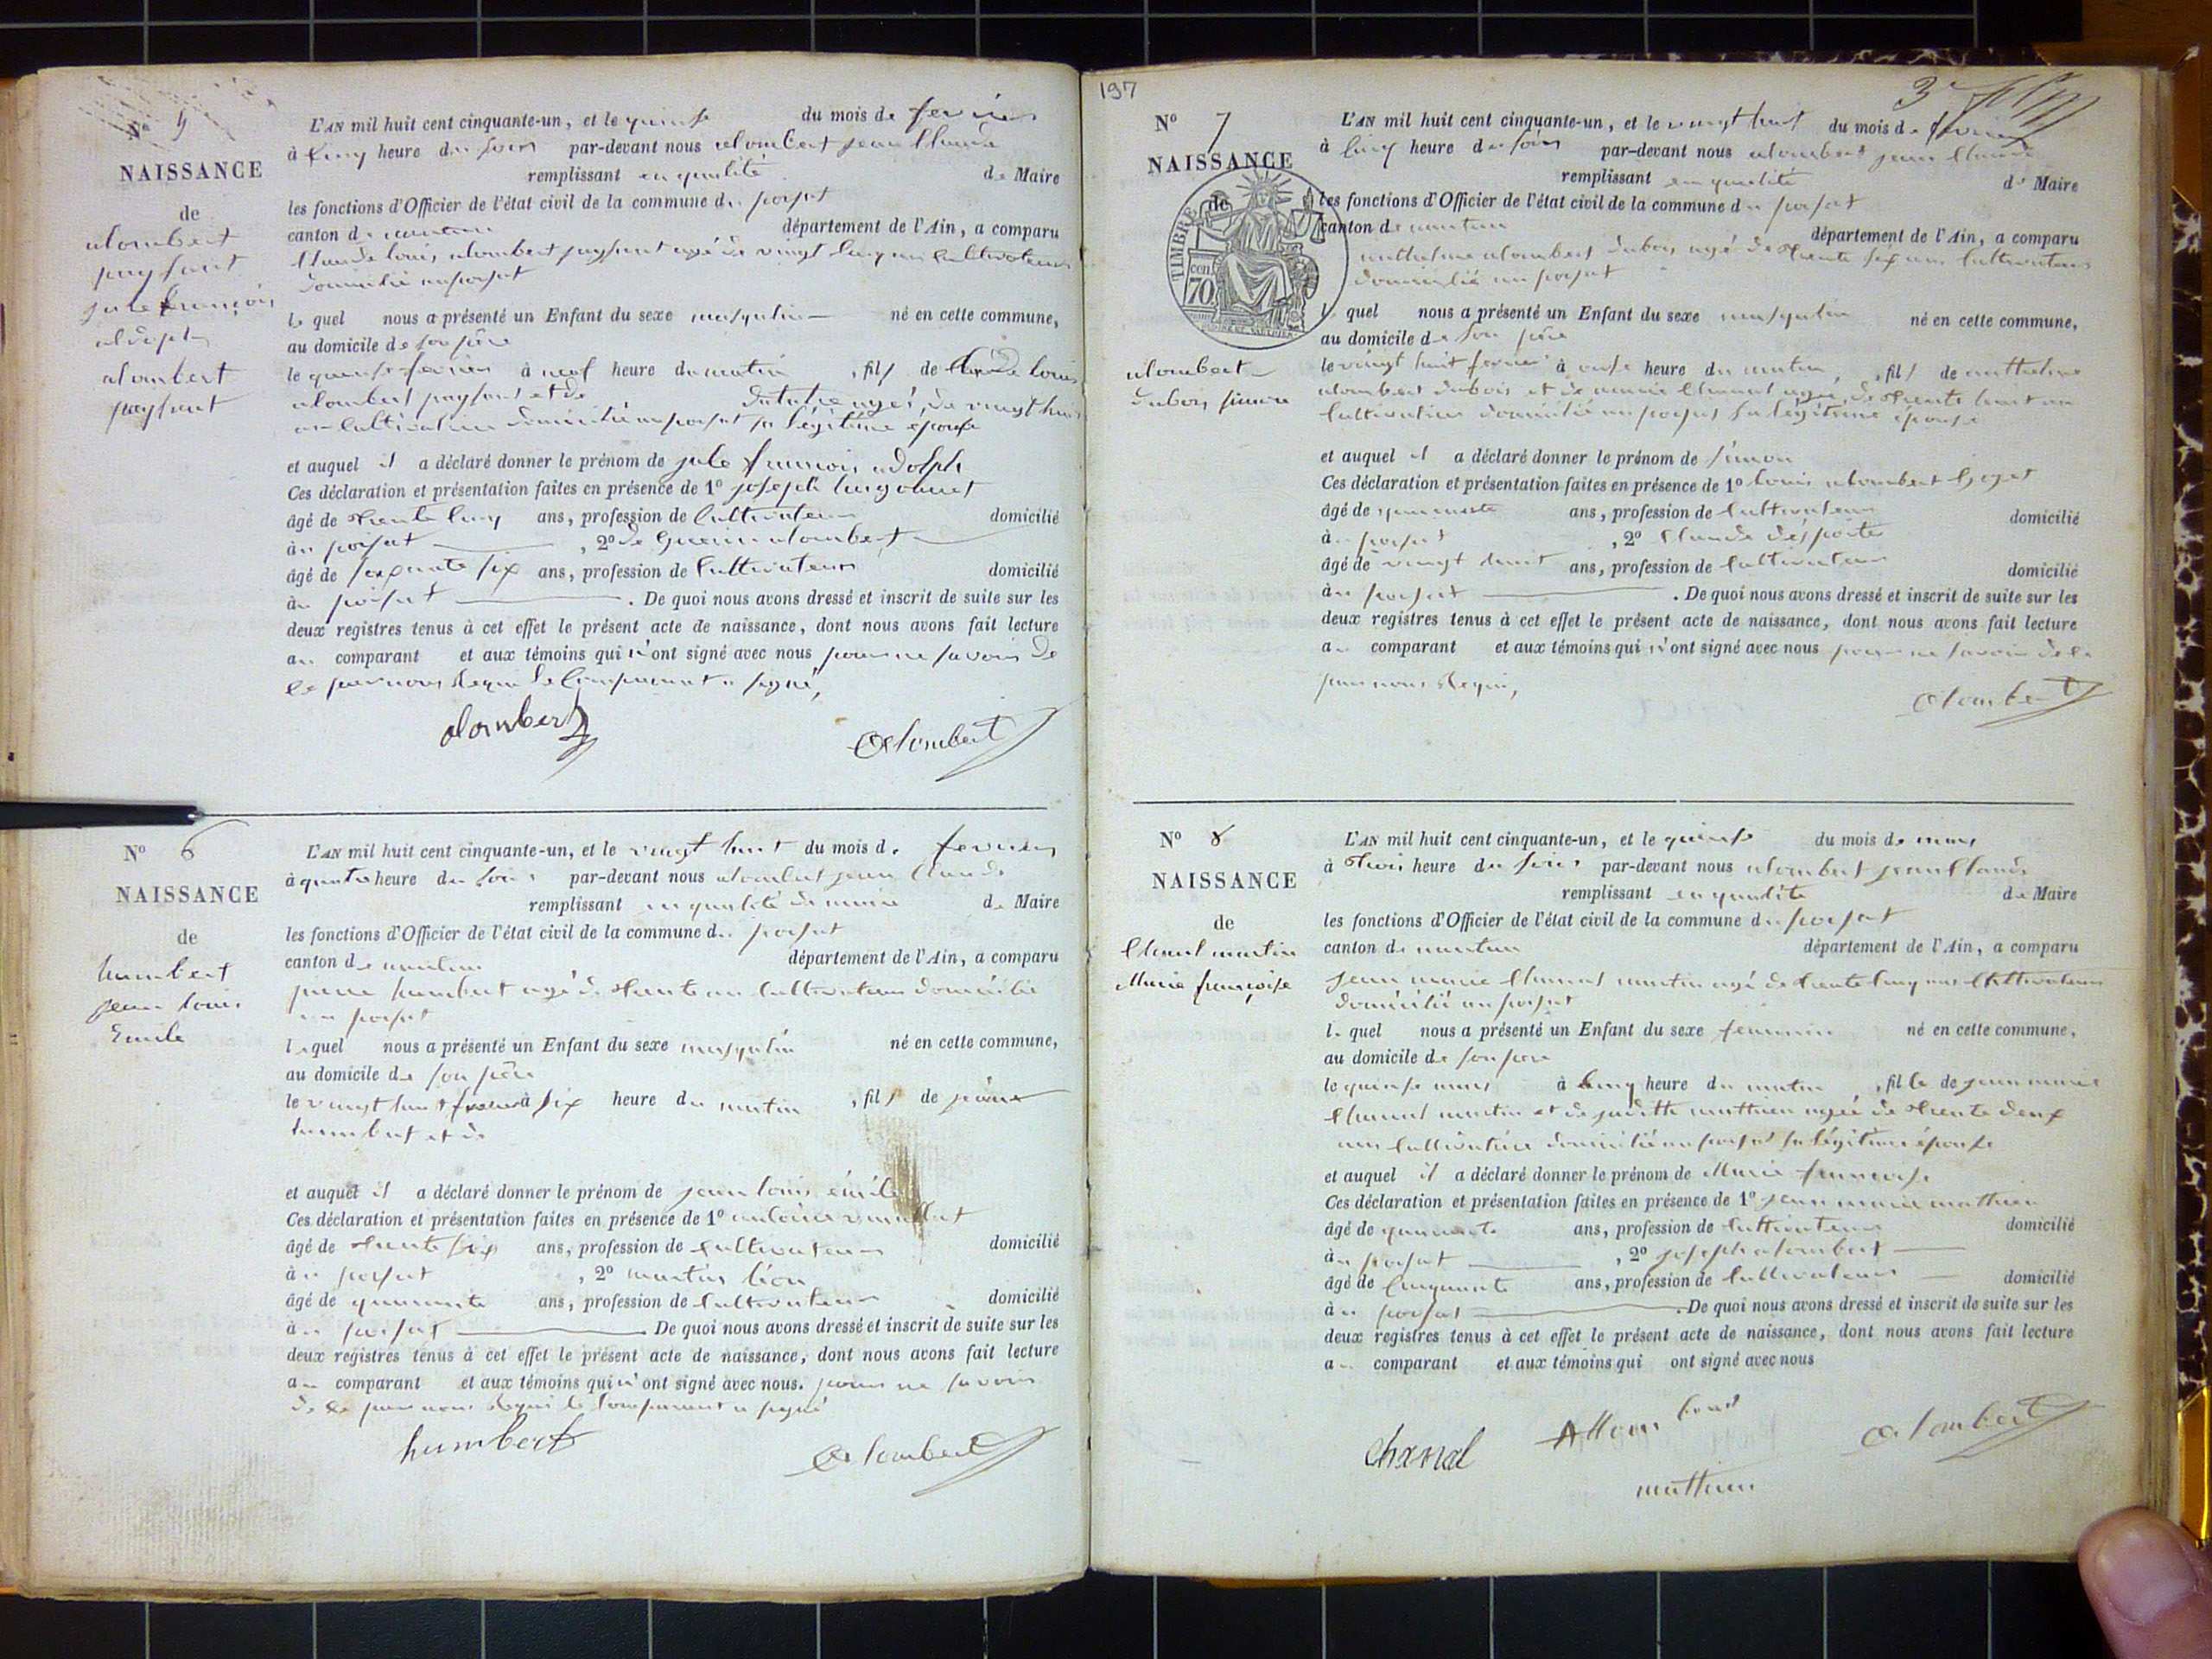 N° 5
NAISSANCE
de
alombert
jule françois
adolph
alombert
L'AN mil huit cent cinquante-un, et le quinse du mois de fevrier
à cinq heure du soir par-devant nous alombert jean Claude
remplissant en qualité de Maire
les fonctions d'Officier de l'état civil de la commune du poisat
canton de nantua département de l'Ain, a comparu
Claude louis alombert agé de vingt cinq ans Cultivateur
domicilié au poisat
le quel nous a présenté un Enfant du sexe masqulin né en cette commune,
au domicile de son père
le quinse fevrier à neuf heure du matin, fils de Claude louis
alombert et de agé de vingt huit
an Cultivatrice domicilié au poisat sa légitime épouse
et auquel il a déclaré donner le prénom de jule francois adolph
Ces déclaration et présentation faites en présence de 1° joseph
âgé de trente cinq ans, profession de Cultivateur domicilié
au poisat, 2° alombert
âgé de soixante six ans, profession de Cultivateur domicilié
au poisat. De quoi nous avons dressé et inscrit de suite sur les
deux registres tenus à cet effet le présent acte de naissance, dont nous avons fait lecture
au comparant et aux témoins qui n'ont signé avec nous pour ne savoir de
ce par nous requi le Comparant a signé,
alombert alombert
N° 6
NAISSANCE
de
humbert
jean louis
Emile
L'AN mil huit cent cinquante-un, et le vingt huit du mois de fevrier
à quatre heure du soir par-devant nous alombert jean Claude
remplissant en qualité de maire de Maire
les fonctions d'Officier de l'état civil de la commune du poisat
canton de nantua département de l'Ain, a comparu
pierre humbert agé de trente an Cultivateur domicilié
au poisat
le quel nous a présenté un Enfant du sexe masqulin né en cette commune,
au domicile de son père
le vingt huit fevrier à six heure du matin, fils de pierre
humbert et de
et auquel il a déclaré donner le prénom de jean louis émile
Ces déclaration et présentation faites en présence de 1°
âgé de trente six ans, profession de Cultivateur domicilié
au poisat, 2° martin léon
âgé de quarante ans, profession de Cultivateur domicilié
au poisat. De quoi nous avons dressé et inscrit de suite sur les
deux registres tenus à cet effet le présent acte de naissance, dont nous avons fait lecture
au comparant et aux témoins qui n'ont signé avec nous. pour ne savoir
de ce par nous requi le Comparant a signé
humbert alombert
197
3e
N° 7
NAISSANCE
de
TIMBRE
70 cen.
alombert
dubois simon
L'AN mil huit cent cinquante-un, et le vingt huit du mois de fevrier
à cinq heure du soir par-devant nous alombert jean Claude
remplissant en qualité de Maire
les fonctions d'Officier de l'état civil de la commune du poisat
canton de nantua département de l'Ain, a comparu
anthelme alombert dubois agé de trente six ans Cultivateur
domicilié au poisat
le quel nous a présenté un Enfant du sexe masqulin né en cette commune,
au domicile de son père
le vingt huit fevrier à onse heure du matin, fils de anthelme
alombert dubois et de Chanal agée de trente huit an
Cultivatrice domicilié au poisat sa légitime épouse
et auquel il a déclaré donner le prénom de simon
Ces déclaration et présentation faites en présence de 1° louis alombert goget
âgé de quarante ans, profession de Cultivateur domicilié
au poisat, 2° Claude
âgé de vingt huit ans, profession de Cultivateur domicilié
au poisat. De quoi nous avons dressé et inscrit de suite sur les
deux registres tenus à cet effet le présent acte de naissance, dont nous avons fait lecture
au comparant et aux témoins qui n'ont signé avec nous pour ne savoir de ce
par nous requi,
alombert
N° 8
NAISSANCE
de
Chanal martin
Marie françoise
L'AN mil huit cent cinquante-un, et le quinse du mois de mars
à trois heure du soir par-devant nous alombert jean Claude
remplissant en qualité de Maire
les fonctions d'Officier de l'état civil de la commune du poisat
canton de nantua département de l'Ain, a comparu
jean marie Chanal martin agé de trente cinq ans Cultivateur
domicilié au poisat
le quel nous a présenté un Enfant du sexe feminin né en cette commune,
au domicile de son père
le quinse mars à cinq heure du matin, fille de jean marie
Chanal martin et de juditte mathieu agée de trente deux
ans Cultivatrice domicilié au poisat sa légitime épouse
et auquel il a déclaré donner le prénom de Marie francoise
Ces déclaration et présentation faites en présence de 1° jean marie mathieu
âgé de quarante ans, profession de Cultivateur domicilié
au poisat, 2° joseph alombert
âgé de cinquante ans, profession de Cultivateur domicilié
au poisat. De quoi nous avons dressé et inscrit de suite sur les
deux registres tenus à cet effet le présent acte de naissance, dont nous avons fait lecture
au comparant et aux témoins qui ont signé avec nous
chanal alombert
mathieu